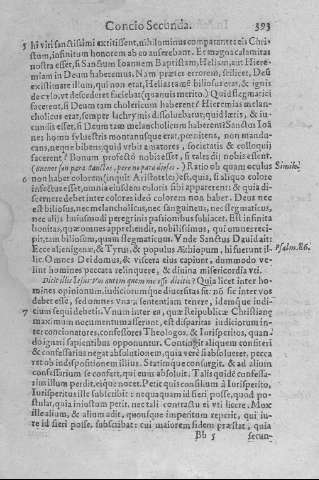 Concio Secunda. 393
5 hi viri sanctissimi extitissent, nihilominus compararentur Chri-
stum, infinitum honorem ab eo auferebant. Et magna calamitas
nostra esset, si Sanctum Ioannem Baptistam, Heliam, aut Hiere-
miam in Deum haberemus. Nam præter errorem, scilicet, Deū
existimare illum, qui non erat, Helias tamē biliosus erat, & ignis
de cælo, vt descederet faciebat (quamuis merito.) Quid flegmatici
facerent, si Deum tam cholericum haberent? Hieremias melan-
cholicus erat, semper lachrymis dissoluebatur, quid lætis, & iu-
cundis esset, si Deum tam melancholicum haberent? Sanctus Ioā
nes homo syluestris montanusque erat, pœnitens, non mandu-
cans, neque bibens: quid vrbis amatores, societatis & colloquij
facerent? Bonum profectò nobis esset, si tales dij nobis essent.
(buenos son para sanctos, pero no para dioses.) Ratio ob quam oculus Simile.
6 non habet colorem (inquit Aristoteles) est, quia, si aliquo colore
infectus esset, omnia eiusdem coloris sibi apparerent: & quia di-
scernere debet inter colores ideò colorem non habet. Deus nec
est biliosus, nec melancholicus, nec sanguineus, nec flegmaticus,
nec alijs huiusmodi peregrinis passionibus subiacet. Est infinita
bonitas, quæ omnes apprehendit, nobilissimus, qui omnes reci-
pit, tam biliosum, quam flegmaticum. Vnde Sanctus Dauid ait:
Ecce alienigenæ, & Tyrus, & populus Æthiopum, hi fuerunt il- Psalm. 86.
lic. Omnes Dei domus, & viscera eius capiunt, dummodo ve-
lint homines peccata relinquere, & diuina misericordia vti.
Dicit illis Iesus: Vos autem quem me esse dicitis? Quia licet inter ho-
mines opinionum, iudiciorumque diuersitas sit: nō sic inter vos
debet esse, sed omnes vnam sententiam tenere, idemque iudi-
7 cium sequi debetis. Vnum inter ea, quæ Reipublicæ Christianę
maximum nocumentum afferunt, est disparitas iudiciorum in-
ter concionatores, confessores Theologos, & Iurisperitos, quan-
do ignari sapientibus opponuntur. Contingit aliquem confiteri
& confessarius negat absolutionem, quia verè is absolueret, pecca
ret ob indispositionem illius. Statimque consurgit, & ad alium
confessarium se confert, qui eum absoluit. Talis quidē confessa-
rium illum perdit, eique nocet. Petit quis consilium à Iurisperito,
Iurisperitus ille subscribit: nequaquam id fieri posse, quod po-
stulat, quia iniustum petit, nec tali contractu ei vti licere. Mox
ille alium, & alium adit, quousque imperitum reperit, qui iu-
re id fieri posse, subscribat: cui maiorem fidem præstat, quia
Bb 5 secun-